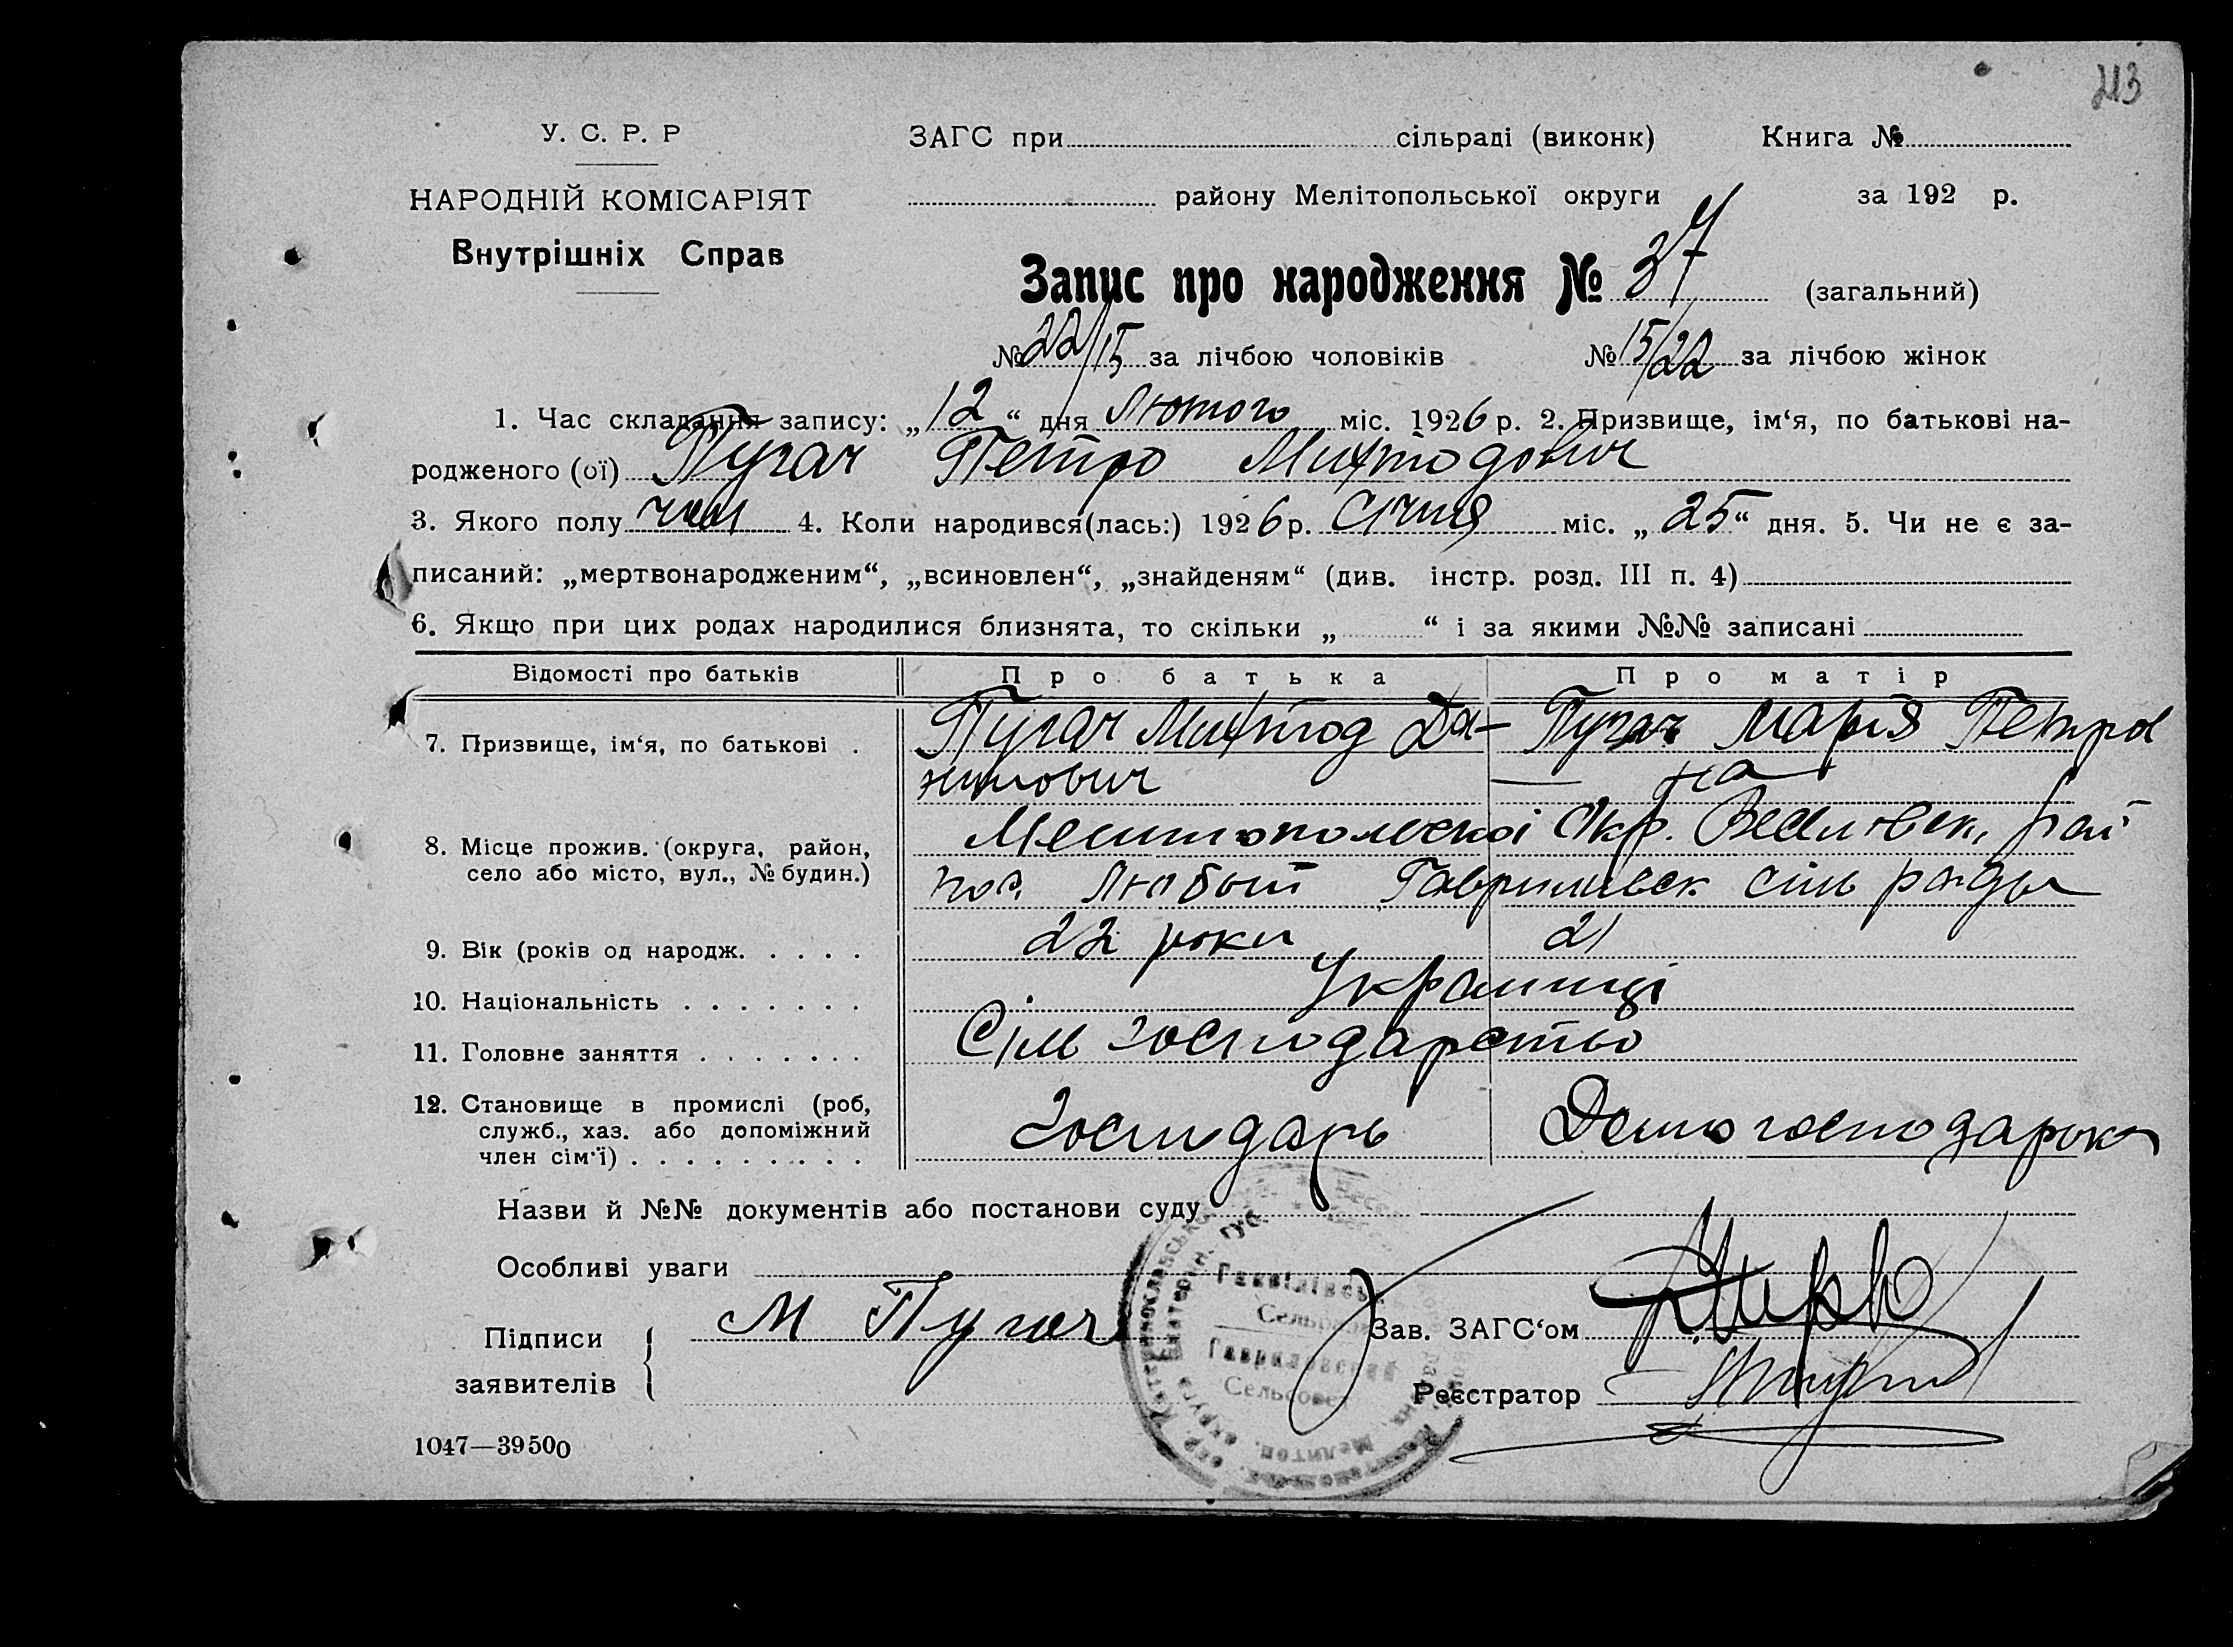 213
У. С. Р. Р
ЗАГС при сільраді (виконк) Книга №
НАРОДНІЙ КОМІСАРІЯТ
району Мелітопольської округи за 192 р.
Внутрішніх Справ
Запис про народження № 37 (загальний)
№ 22/15 за лічбою чоловіків № 15/22 за лічбою жінок
1. Час складання запису: „12“ дня Лютого міс. 1926 р. 2. Призвище, ім‘я, по батькові на-
родженого (ої) Пугач Петро Михтодович
3. Якого полу чол 4. Коли народився(лась:) 1926 р. Січня міс. „25“ дня. 5. Чи не є за-
писаний: „мертвонародженим“, „всиновлен“, „знайденям“ (див. інстр. розд. III п. 4)
6. Якщо при цих родах народилися близнята, то скільки „ “ і за якими №№ записані
Відомості про батьків Про батька Про матір
7. Призвище, ім‘я, по батькові . Пугач Михтод Да- Пугач Марія Петров
нилович — на
8. Місце прожив. (округа, район, Мелитопольскоі Окр. Веселовск, рай
село або місто, вул., № будин.) пос. Любый Гаврилівск сіль рады
9. Вік (років од народж. . . . . 22 роки 21
10. Національність . . . . . . . Украинці
11. Головне заняття . . . . . . . Сіль господарство
12. Становище в промислі (роб, Господарь Домогосподарка
служб., хаз. або допоміжний
член сім‘ї) . . . . . . . . .
Назви й №№ документів або постанови суду
Особливі уваги
Гавілівсь
Сельрада
Гавриловский
Сельсовет
Підписи М Пугач Зав. ЗАГС‘ом
заявителів Реєстратор
1047—39500